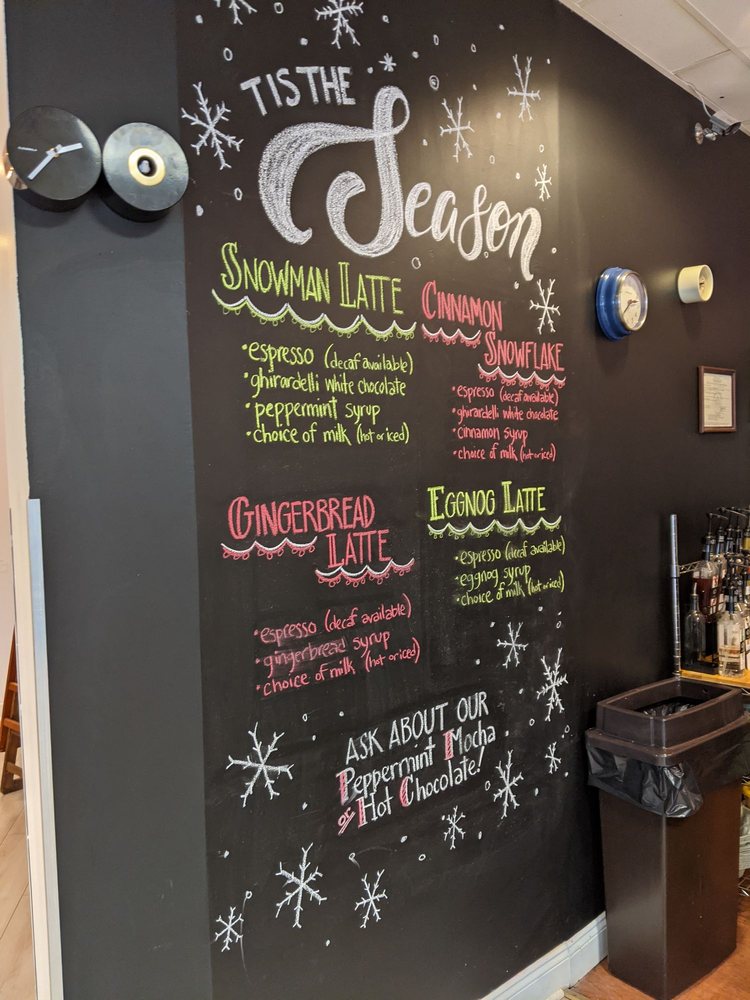 TIS THE
Season
SNOWMAN LATTE
• espresso (decaf available)
• ghirardelli white chocolate
• peppermint syrup
• choice of milk (hot or iced)
CINNAMON
SNOWFLAKE
• espresso (decaf available)
• ghirardelli white chocolate
• cinnamon syrup
• choice of milk (hot or iced)
GINGERBREAD
LATTE
• espresso (decaf available)
• gingerbread syrup
• choice of milk (hot or iced)
EGGNOG LATTE
• espresso (decaf available)
• eggnog syrup
• choice of milk (hot or iced)
ASK ABOUT OUR
Peppermint Mocha
or Hot Chocolate!